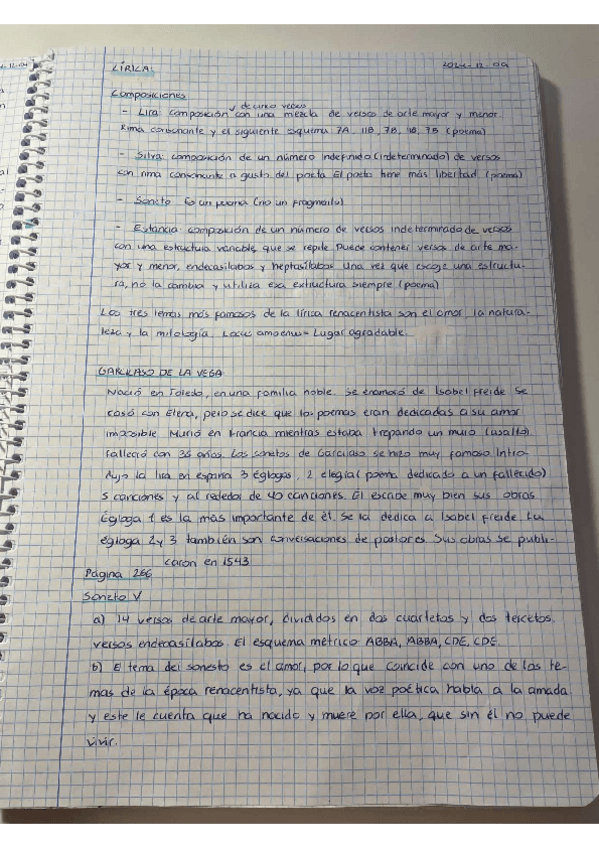 LÍRICA: 2024-12-09
Composiciones
de cinco versos
- Lira: composición con una mezcla de versos de arte mayor y menor.
Rima consonante y el siguiente esquema 7A, 11B, 7B, 7B (poema)
- Silva: composición de un número indefinido (indeterminado) de versos
con rima consonante a gusto del poeta. El poeta tiene más libertad (poema)
- Soneto: Es un poema (no un fragmento)
- Estancia: composición de un número de versos indeterminado de versos
con una estructura variable, que se repite. Puede contener versos de arte ma-
yor y menor, endecasílabos y heptasílabos. Una vez que escoge una estructu-
ra, no la cambia y utiliza esa extructura siempre (poema)
Los tres temas más famosos de la lírica renacentista son el amor, la natura-
leza y la mitología. Locus amoenus = Lugar agradable.
DE LA VEGA
Nació en Toledo, en una familia noble. Se enamoró de Isabel Freide. Se
casó con Elena, pero se dice que los poemas eran dedicadas a su amor
imposible. Murió en Francia mientras estaba trepando un muro (asalto)
Falleció con 35 años. Los sonetos de Garcilaso se hizo muy famoso. Intro-
dujo la lira en españa. 3 églogas, 2 elegía (poema dedicado a un fallecido)
5 canciones y al rededor de 40 canciones. Él escribe muy bien sus obras
Égloga 1 es la más importante de él. Se la dedica a Isabel Freide. La
égloga 2 y 3 también son conversaciones de pastores. Sus obras se publi-
caron en 1543
Página 266
Soneto V
a) 14 versos de arte mayor, divididos en dos cuartetos y dos tercetos.
versos endecasílabos. El esquema métrico ABBA, ABBA, CDE, CDE.
b) El tema del sonesto es el amor, por lo que coincide con uno de los te-
mas de la época renacentista, ya que la voz poética habla a la amada
y este le cuenta que ha nacido y muere por ella, que sin él no puede
vivir.